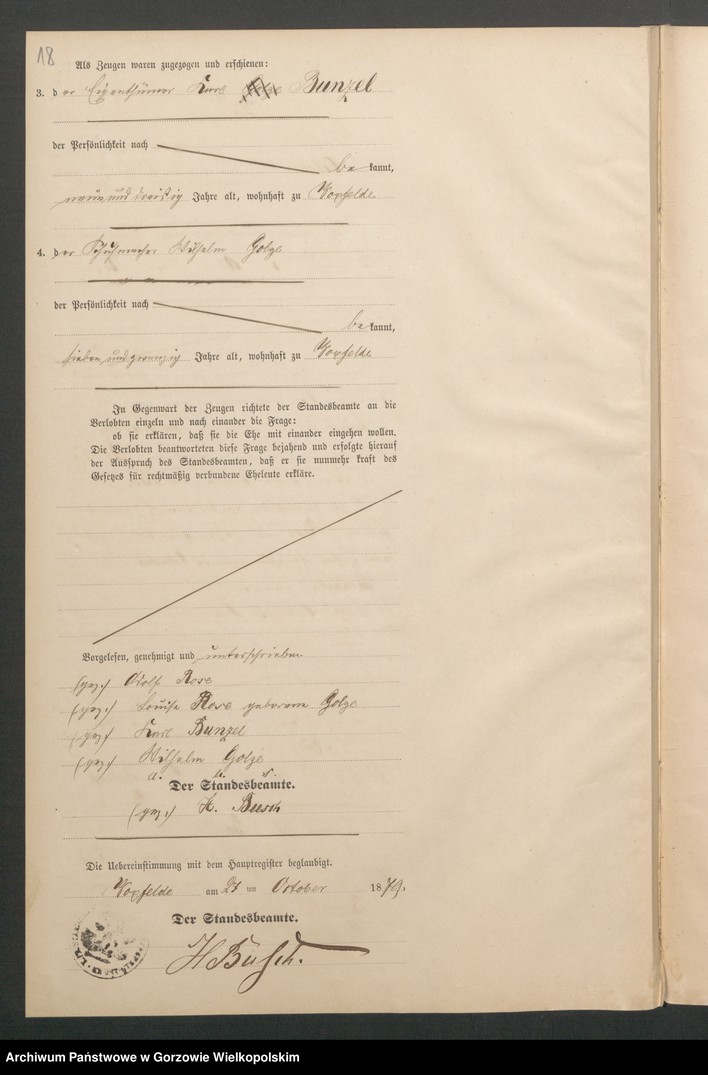 18
Als Zeugen waren zugezogen und erschienen:
3. der Eigenthümer Karl Bunzel
der Persönlichkeit nach
bekannt,
neun und dreißig Jahre alt, wohnhaft zu Voxfelde
4. der Schuhmacher Wilhelm Golze
der Persönlichkeit nach
bekannt,
sieben und zwanzig Jahre alt, wohnhaft zu Voxfelde
In Gegenwart der Zeugen richtete der Standesbeamte an die
Verlobten einzeln und nach einander die Frage:
ob sie erklären, daß sie die Ehe mit einander eingehen wollen.
Die Verlobten beantworteten diese Frage bejahend und erfolgte hierauf
der Ausspruch des Standesbeamten, daß er sie nunmehr kraft des
Gesetzes für rechtmäßig verbundene Eheleute erkläre.
Vorgelesen, genehmigt und unterschrieben
(gez.) Adolf Rose
(gez.) Louise Rose geborene Golze
(gez.) Karl Bunzel
(gez.) Wilhelm Golze
Der Standesbeamte.
(gez.) H. Busch
Die Uebereinstimmung mit dem Hauptregister beglaubigt.
Voxfelde am ten October 1879.
Der Standesbeamte.
H Busch.
Archiwum Państwowe w Gorzowie Wielkopolskim